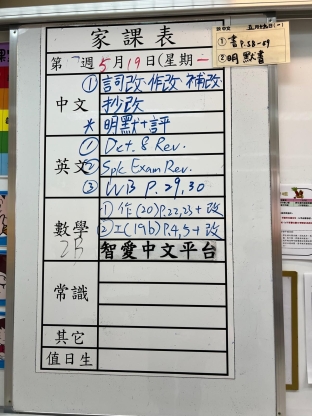 家課表
第 週5月19日(星期一
中文
①詞改、作改、補改
抄改
* 明默+評
英文
① Dict. & Rev.
② Spk Exam Rev.
③ WB P.29,30
數學
① 作(20)P.22,23+改
② 工(19b)P.4,5+改
2B
智愛中文平台
常識
其它
值日生
① 書P.58-59
② 明 默書